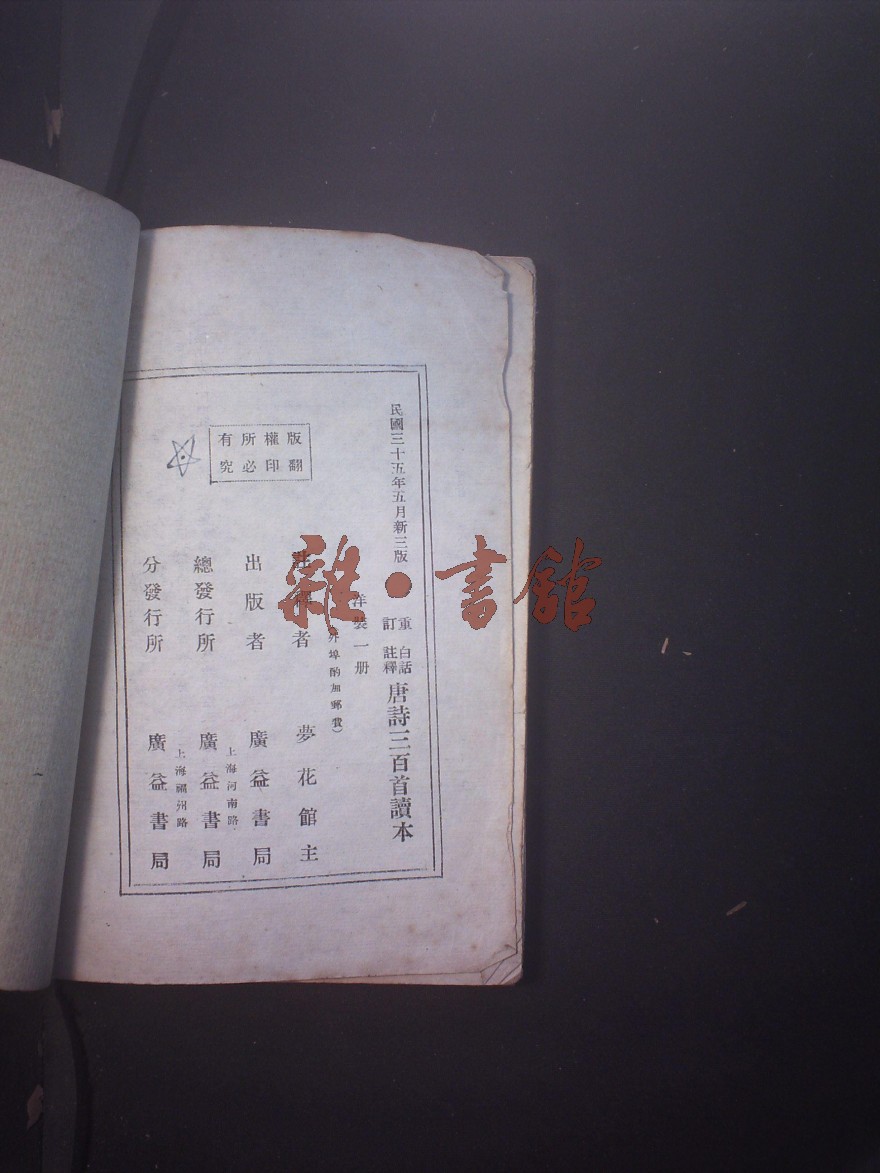 民國三十五年五月新三版
重訂 白話註釋 唐詩三百首讀本
洋裝一册
外埠酌加郵費）
者 夢花館主
出版者 廣益書局
上海河南路
總發行所 廣益書局
上海福州路
分發行所 廣益書局
版權所有
翻印必究
雜·書館